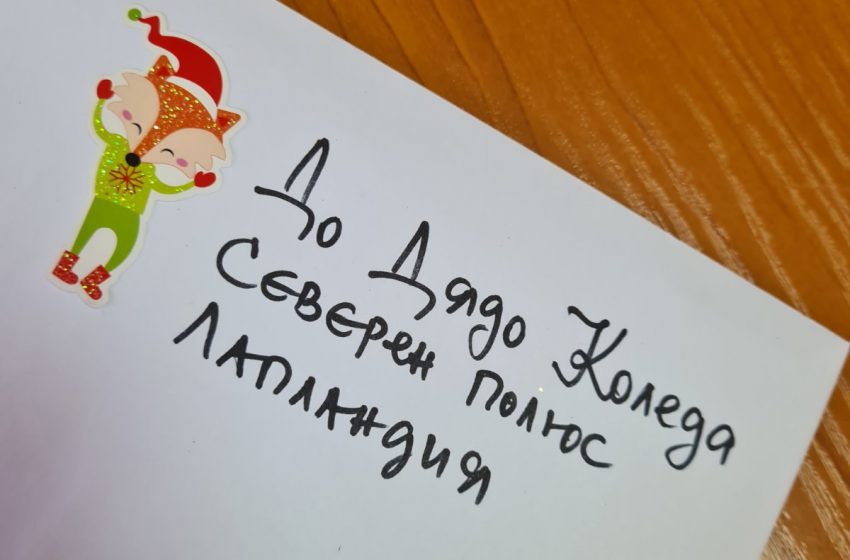 До Дядо Коледа
Северен полюс
Лапландия